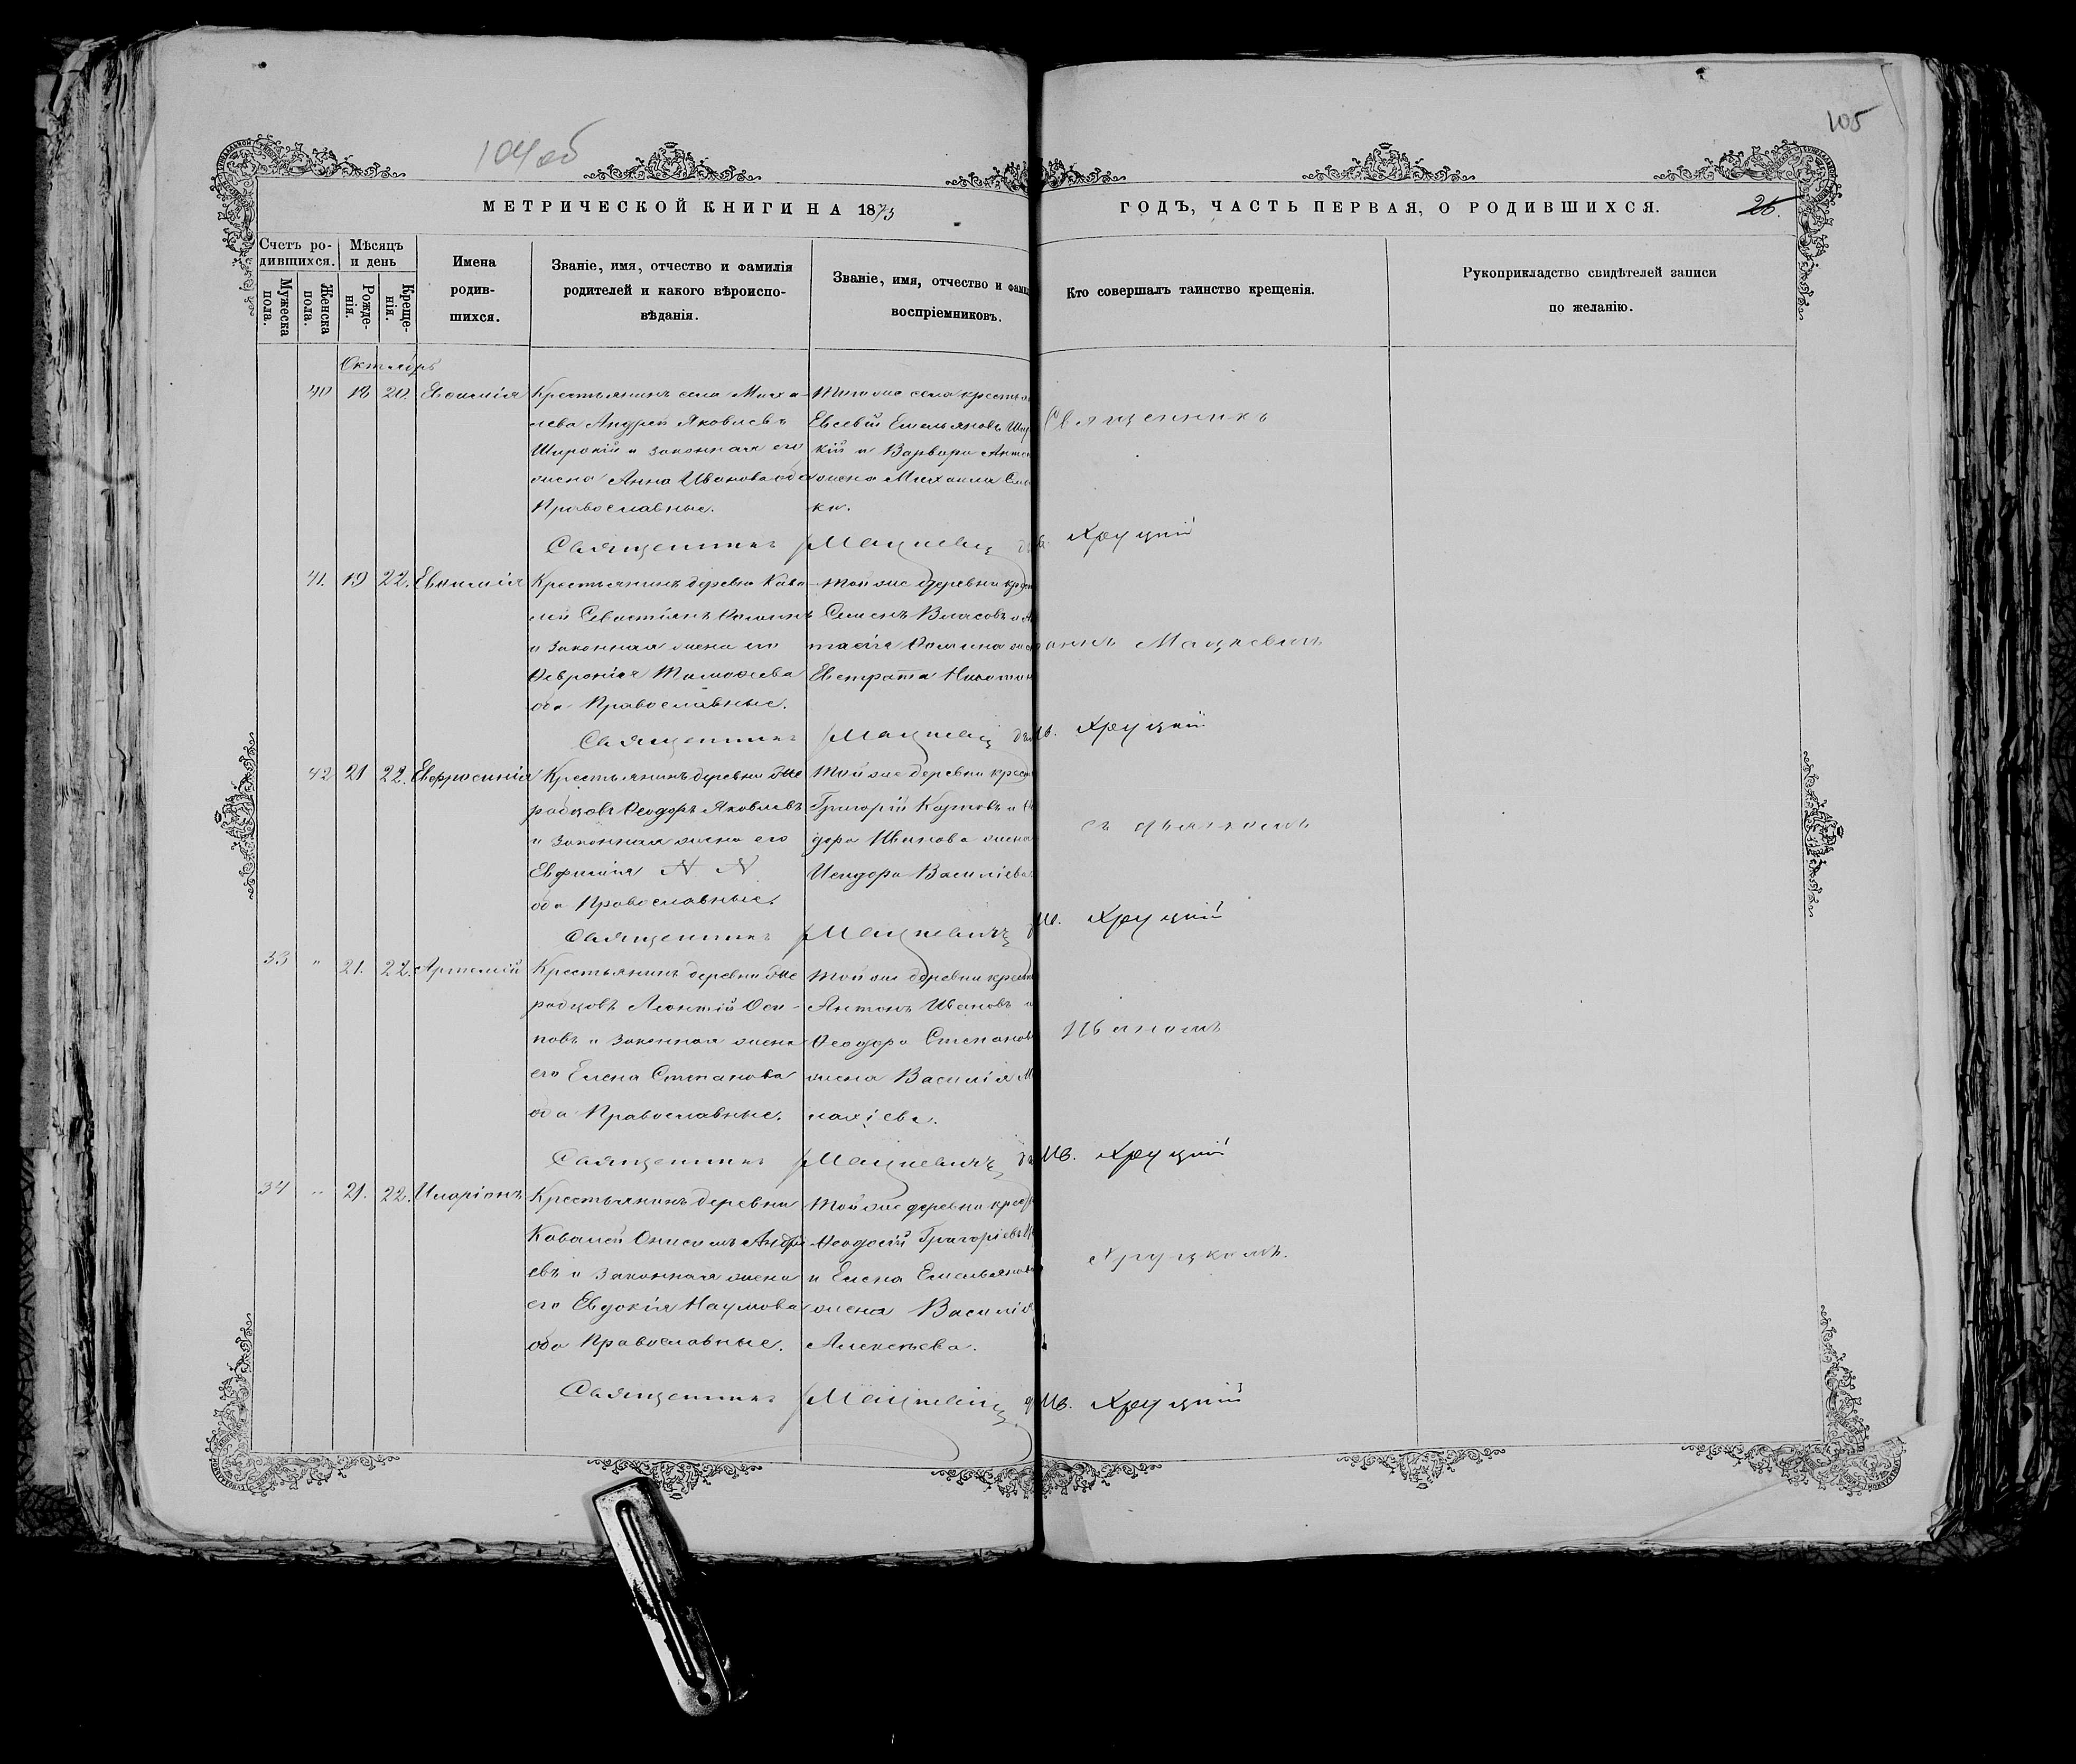 104об
105
МЕТРИЧЕСКОЙ КНИГИ НА 1873
ГОДЪ, ЧАСТЬ ПЕРВАЯ, О РОДИВШИХСЯ.
26.
Счетъ ро-
дившихся.
Мужеска
пола.
Женска
пола.
Мѣсяцъ
и день
Рожде-
нія.
Креще-
нія.
Имена
родив-
шихся.
Званіе, имя, отчество и фамилія
родителей и какого вѣроиспо-
вѣданія.
Званіе, имя, отчество и фами
воспріемниковъ.
Кто совершалъ таинство крещенія.
Рукоприкладство свидѣтелей записи
по желанію.
Октябрь
40 18 20 Евфимія
Крестьянинъ села Миха-
лева Андрей Яковлевъ
Широкій и законная его
жена Анна Иванова оба
Православные.
Того же села крестьян
Евсевій Емельяновъ Шир
кій и Варвара Антон
жена Михаила
ки.
Священникъ Мацкевич Ив. Хруцкій
41. 19 22. Евфимія
Крестьянинъ деревни Кова-
лей Севастіянъ
и законная жена его
Февронія Тимофеева
оба Православные.
той же деревни крест
Семенъ Власовъ и А
тасія Фомина жен
Евстрата Никитин
Священникъ Мацкевич Ив. Хруцкій
42 21 22. Евфросинія
Крестьянинъ деревни Же
ребцовъ Феодоръ Яковлевъ
и законная жена его
Евфимія N N
оба Православные.
Той же деревни крест
Григорій Карповъ и Фе
дора Иванова жена
Исидора Василіева
Священникъ Мацкевичъ Ив. Хруцкій
33 " 21. 22. Артемій
Крестьянинъ деревни Же
ребцовъ Леонтій Оси-
повъ и законная жена
его Елена Степанова
оба Православные.
той же деревни крест
Антонъ Ивановъ и
Феодора Степанов
жена Василія М
лахіева.
Священникъ Мацкевичъ Ив. Хруцкій
34 " 21. 22. Иларіонъ
Крестьянинъ деревни
Ковалей Онисимъ Андре
евъ и законная жена
его Евдокія Наумова
оба Православные.
той же деревни крест
Феодосій Григоріевъ
и Елена Емельянова
жена Василія
Алексѣева.
Священникъ Мацкевич Ив. Хруцкій
Священникъ
Іоаннъ Мацкевичъ
съ дьячкомъ
Иваномъ
Хруцкимъ.